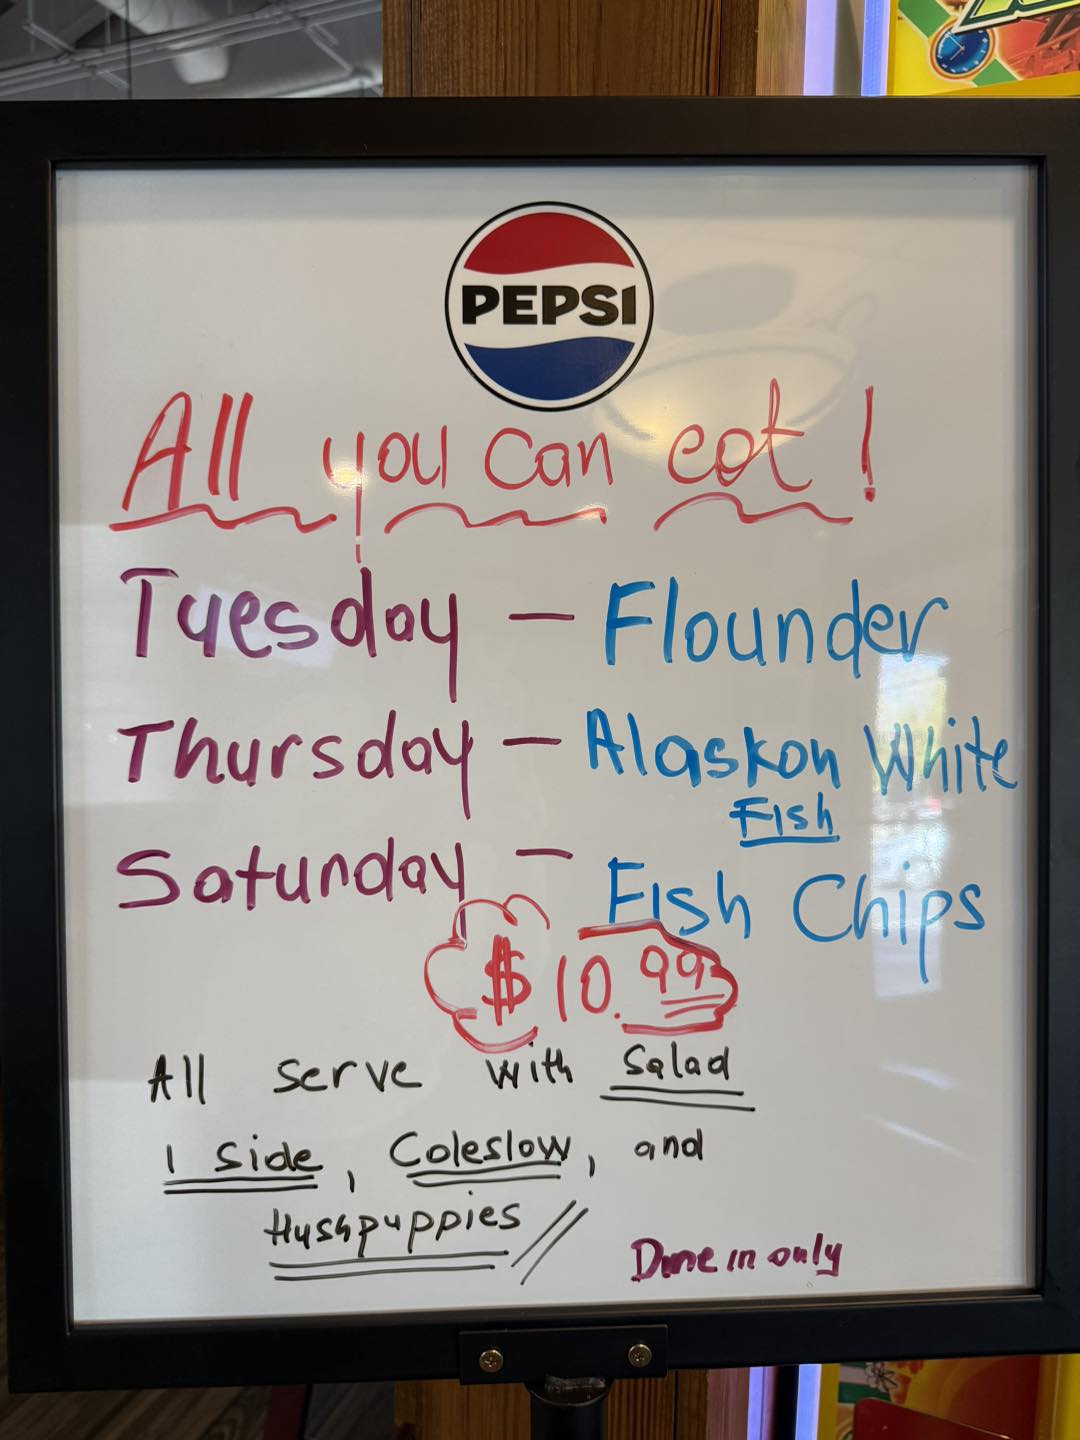 PEPSI
All you can eat!
Tuesday - Flounder
Thursday - Alaskan White
Fish
Saturday - Fish Chips
$10.99
All serve with Salad
1 Side, Coleslow, and
Hushpuppies //
Dine in only